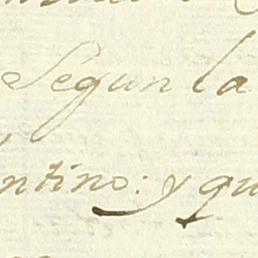 Segun la
ntino: y qu